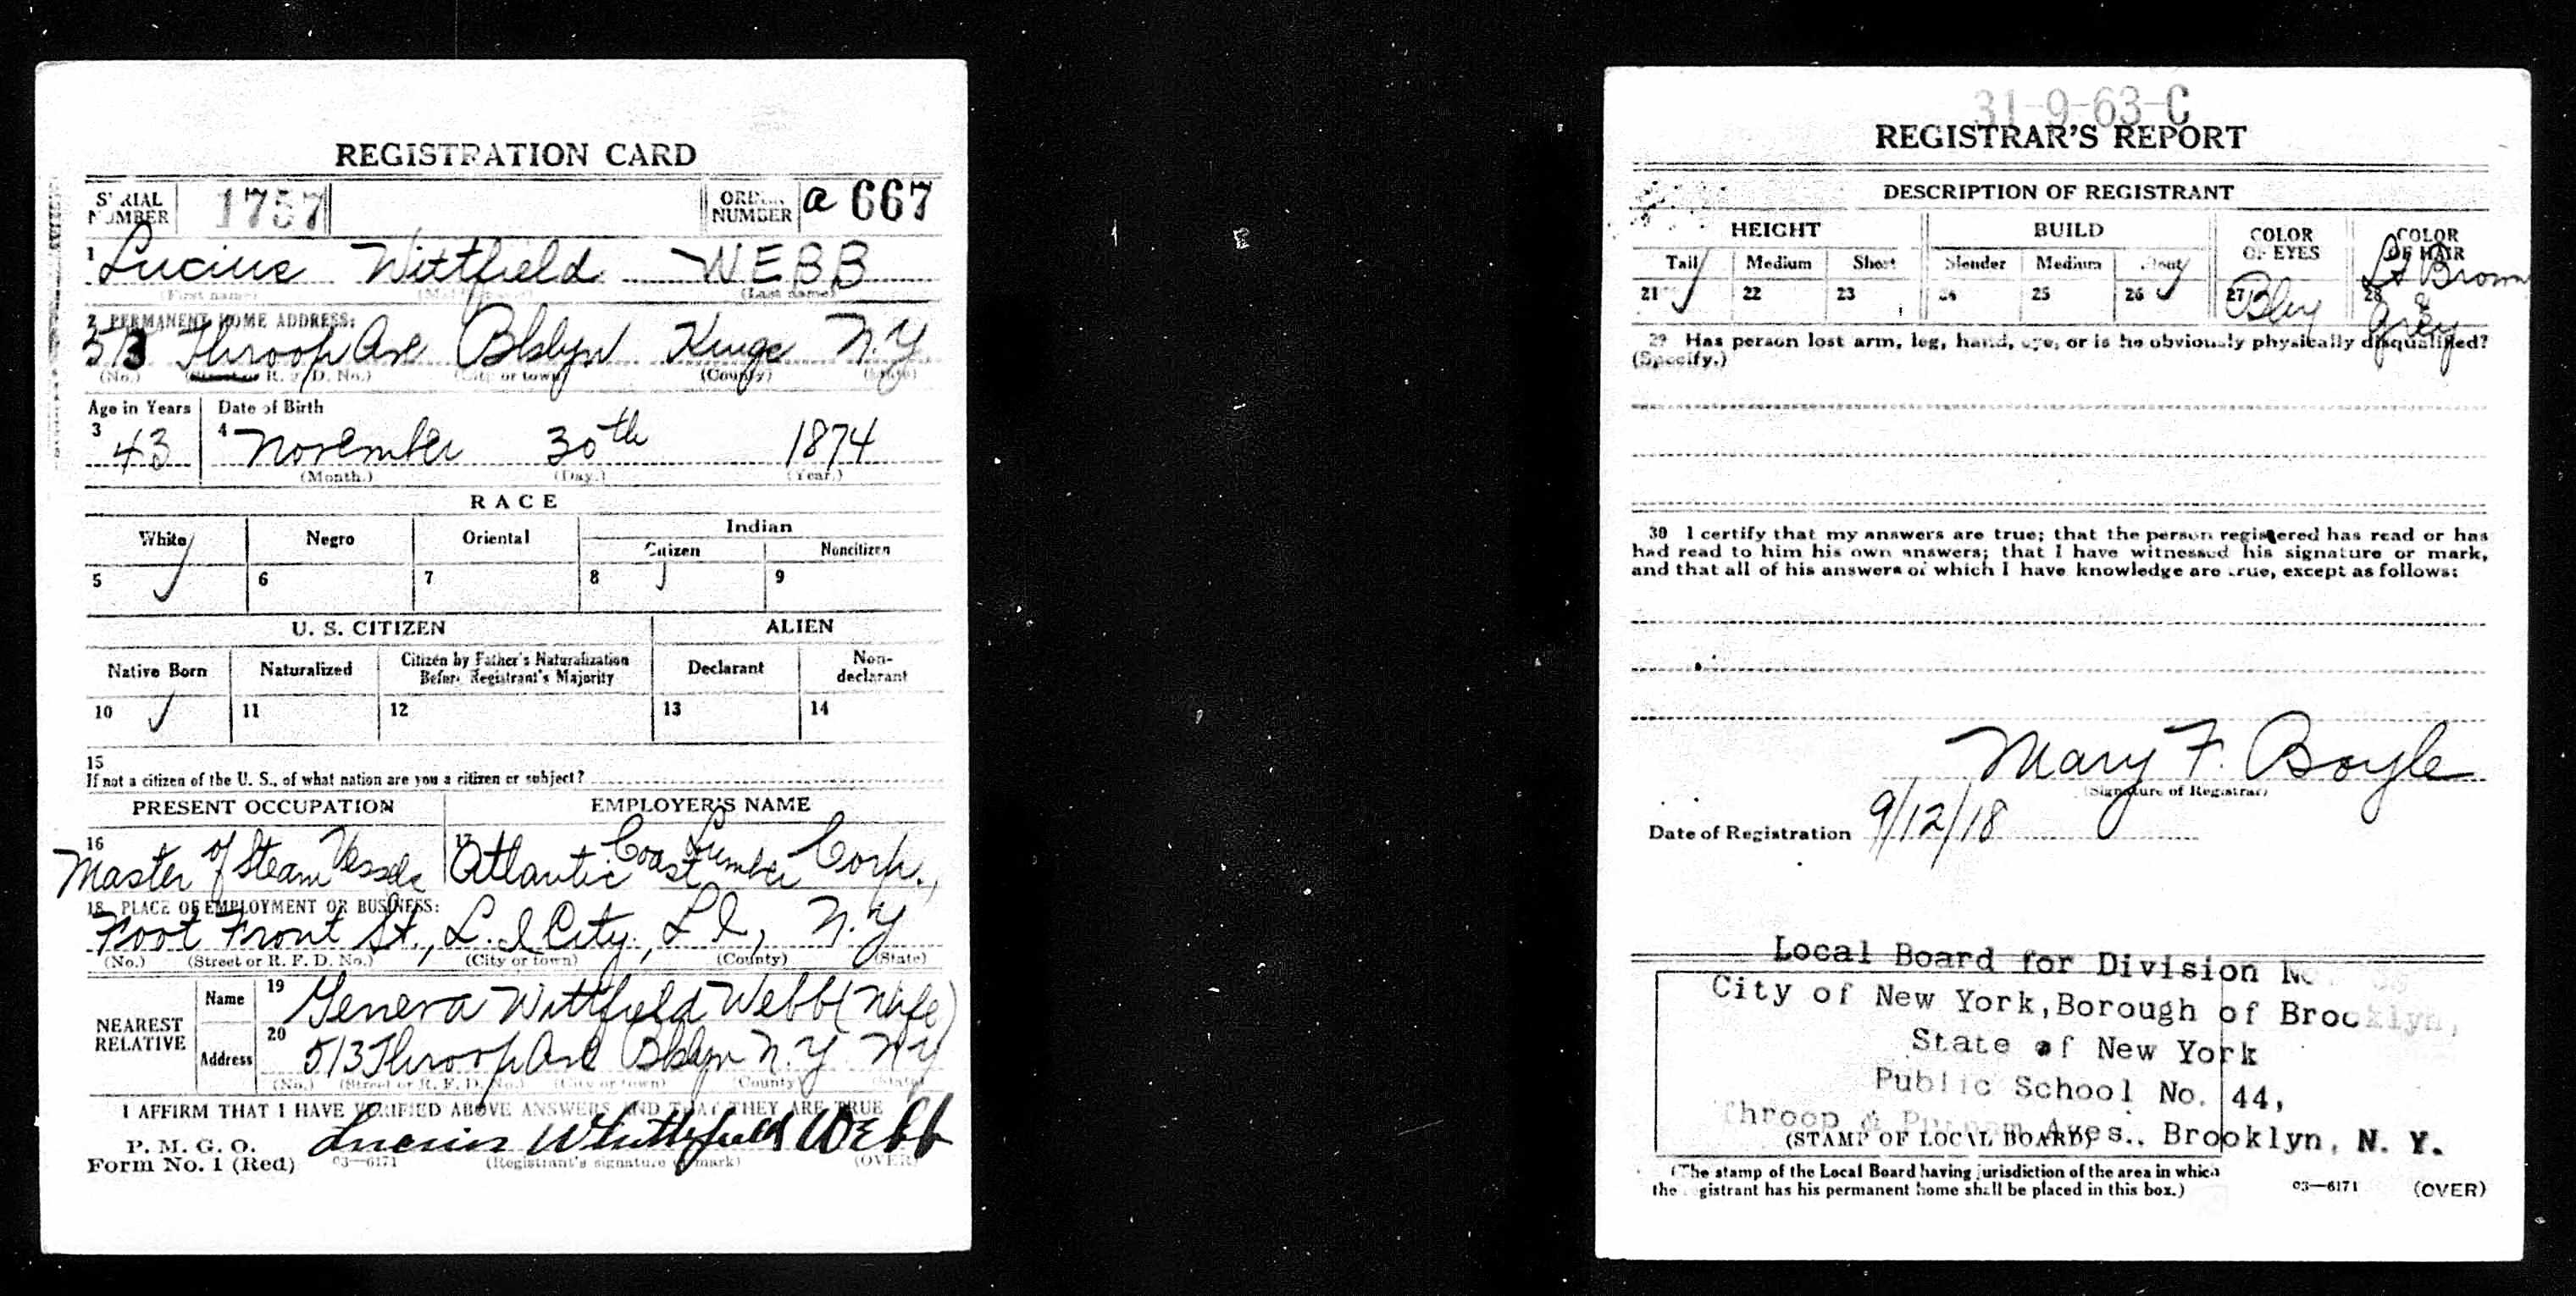 REGISTRATION CARD
SERIAL NUMBER 1757 ORDER NUMBER a 667
1 Lucius Wittfield WEBB
(First name) (Middle name) (Last name)
2 PERMANENT HOME ADDRESS:
513 Throop Ave Bklyn Kings N.Y
(No.) (Street or R. F. D. No.) (City or town) (County) (State)
Age in Years Date of Birth
3 43 4 November 30th 1874
(Month.) (Day.) (Year.)
RACE
White Negro Oriental Indian
Citizen Noncitizen
5 6 7 8 9
U. S. CITIZEN ALIEN
Native Born Naturalized Citizen by Father's Naturalization Before Registrant's Majority Declarant Non-declarant
10 11 12 13 14
15
If not a citizen of the U. S., of what nation are you a citizen or subject?
PRESENT OCCUPATION EMPLOYER'S NAME
16 Master of Steam Vessels 17 Atlantic Coast Lumber Corp.,
18 PLACE OF EMPLOYMENT OR BUSINESS:
Foot Front St., L. I City, L I, N.Y
(No.) (Street or R. F. D. No.) (City or town) (County) (State)
NEAREST RELATIVE
Name 19 Geneva Wittfield Webb (Wife)
Address 20 513 Throop Ave Bklyn N.Y NY
(No.) (Street or R. F. D. No.) (City or town) (County) (State)
I AFFIRM THAT I HAVE VERIFIED ABOVE ANSWERS AND THAT THEY ARE TRUE
P. M. G. O.
Form No. 1 (Red) 03—6171 Lucius Whittfield Webb
(Registrant's signature or mark) (OVER)
31-9-63-C
REGISTRAR'S REPORT
DESCRIPTION OF REGISTRANT
HEIGHT BUILD COLOR OF EYES COLOR OF HAIR
Tall Medium Short Slender Medium Stout
21 22 23 24 25 26 27 Blu 28 Lt Brown & grey
29 Has person lost arm, leg, hand, eye, or is he obviously physically disqualified?
(Specify.)
30 I certify that my answers are true; that the person registered has read or has
had read to him his own answers; that I have witnessed his signature or mark,
and that all of his answers of which I have knowledge are true, except as follows:
Mary F. Boyle
(Signature of Registrar)
Date of Registration 9/12/18
Local Board for Division No.
City of New York, Borough of Brooklyn,
State of New York
Public School No. 44,
Throop & Putnam Aves., Brooklyn, N. Y.
(STAMP OF LOCAL BOARD)
(The stamp of the Local Board having jurisdiction of the area in which
the registrant has his permanent home shall be placed in this box.)
03—6171 (OVER)